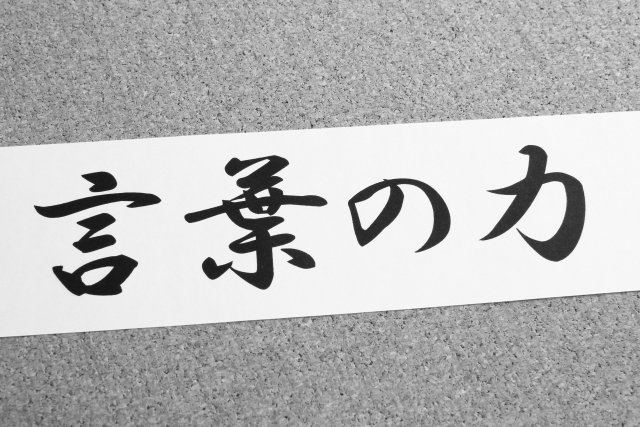 言葉の力